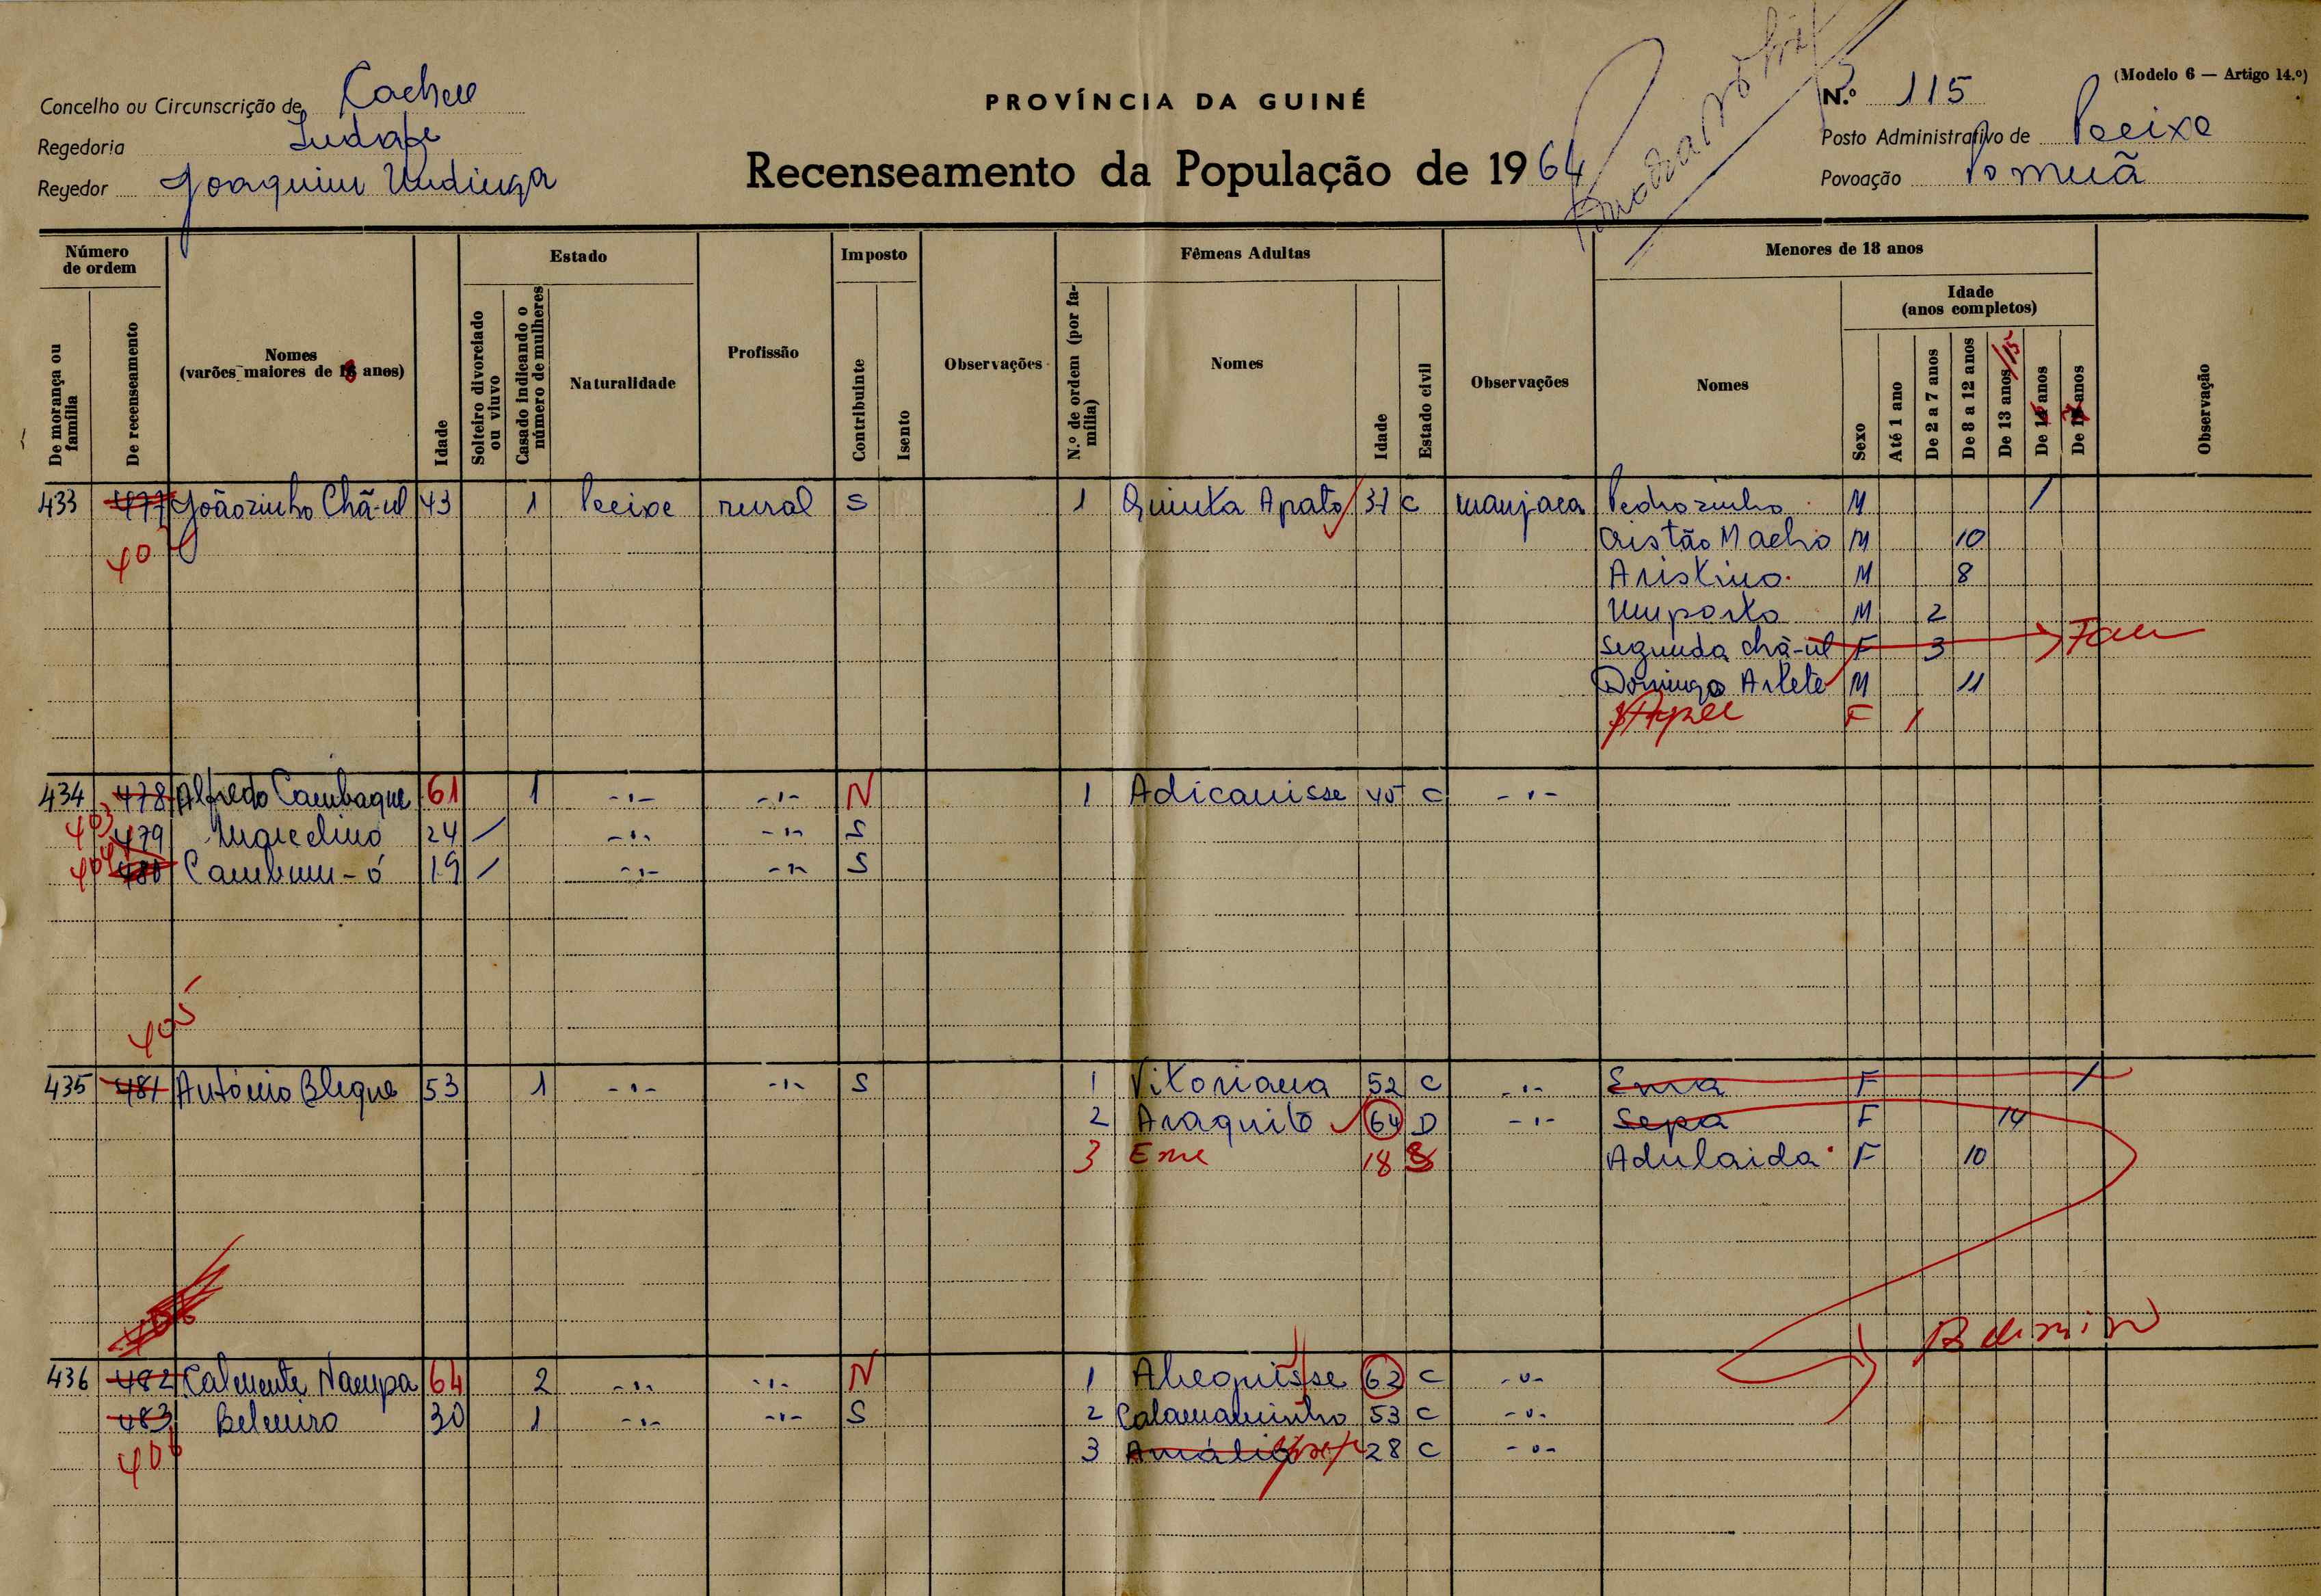 (Modelo 6 — Artigo 14.º)
Concelho ou Circunscrição de Cacheu
PROVÍNCIA DA GUINÉ
N.º 115
Regedoria
Posto Administrativo de Pecixe
Regedor Joaquim Undinga
Recenseamento da População de 1964
Povoação Pomuã
Número de ordem
Estado
Imposto
Fêmeas Adultas
Menores de 18 anos
Idade (anos completos)
De morança ou família
De recenseamento
Nomes (varões maiores de 18 anos)
Idade
Solteiro divorciado ou viuvo
Casado indicando o número de mulheres
Naturalidade
Profissão
Contribuinte
Isento
Observações
N.º de ordem (por família)
Nomes
Idade
Estado civil
Observações
Nomes
Sexo
Até 1 ano
De 2 a 7 anos
De 8 a 12 anos
De 13 anos /15
De anos
De anos
Observação
433 477 Joãozinho Chã-ul 43 1 Pecixe rural S 1 Quinta Apato 37 C manjaca Pedrozinho M /
Cristão Macho M 10
40
Aristino M 8
Umposto M 2
Segunda Chã-ul F 3
Domingo Arlete M 11
F 1
434 478 Alfredo Cambaque 61 1 -"- -"- N 1 Adicanisse 45 C -"-
403 479 Marcelino 24 / -"- -"- S
404 480 Cambum-ó 19 / -"- -"- S
405
435 481 António Bleque 53 1 -"- -"- S 1 Vitoriana 52 C -"- Ema F /
2 Araquito 64 D -"- Sepa F 14
3 Eme 18 S Adulaida F 10
Belmiro
436 482 Calmente Nampa 64 2 -"- -"- N 1 Alequisse 62 C -"-
483 Belmiro 30 1 -"- -"- S 2 Calamaminho 53 C -"-
406 3 Amália 28 C -"-